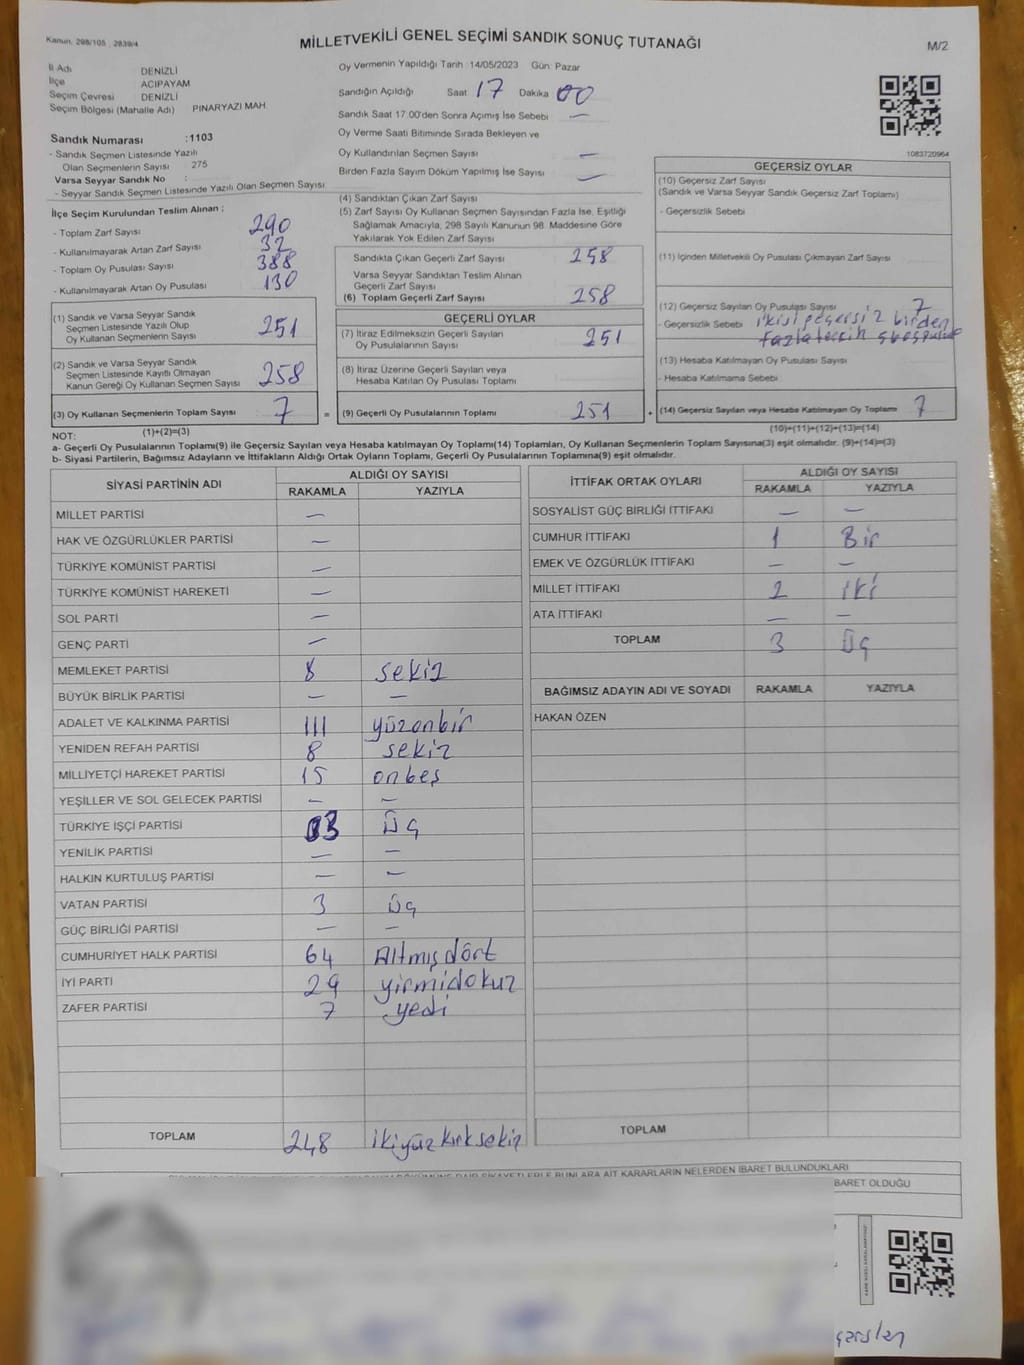 Kanun, 298/105 , 2839/4
MİLLETVEKİLİ GENEL SEÇİMİ SANDIK SONUÇ TUTANAĞI
M/2
İl Adı DENİZLİ
İlçe ACIPAYAM
Seçim Çevresi DENİZLİ
Seçim Bölgesi (Mahalle Adı) PINARYAZI MAH.
Oy Vermenin Yapıldığı Tarih :14/05/2023 Gün: Pazar
Sandığın Açıldığı Saat 17 Dakika 00
Sandık Saat 17.00'den Sonra Açımış İse Sebebi —
Oy Verme Saati Bitiminde Sırada Bekleyen ve
Oy Kullandırılan Seçmen Sayısı —
Birden Fazla Sayım Döküm Yapılmış İse Sayısı —
1083720964
Sandık Numarası :1103
- Sandık Seçmen Listesinde Yazılı
Olan Seçmenlerin Sayısı 275
Varsa Seyyar Sandık No :
- Seyyar Sandık Seçmen Listesinde Yazılı Olan Seçmen Sayısı
İlçe Seçim Kurulundan Teslim Alınan :
- Toplam Zarf Sayısı 290
- Kullanılmayarak Artan Zarf Sayısı 32
- Toplam Oy Pusulası Sayısı 388
- Kullanılmayarak Artan Oy Pusulası 130
(1) Sandık ve Varsa Seyyar Sandık
Seçmen Listesinde Yazılı Olup
Oy Kullanan Seçmenlerin Sayısı 251
(2) Sandık ve Varsa Seyyar Sandık
Seçmen Listesinde Kayıtlı Olmayan
Kanun Gereği Oy Kullanan Seçmen Sayısı 258
(3) Oy Kullanan Seçmenlerin Toplam Sayısı 7
(1)+(2)=(3)
(4) Sandıktan Çıkan Zarf Sayısı
(5) Zarf Sayısı Oy Kullanan Seçmen Sayısından Fazla İse, Eşitliği
Sağlamak Amacıyla, 298 Sayılı Kanunun 98. Maddesine Göre
Yakılarak Yok Edilen Zarf Sayısı
Sandıkta Çıkan Geçerli Zarf Sayısı 258
Varsa Seyyar Sandıktan Teslim Alınan
Geçerli Zarf Sayısı
(6) Toplam Geçerli Zarf Sayısı 258
GEÇERLİ OYLAR
(7) İtiraz Edilmeksizin Geçerli Sayılan
Oy Pusulalarının Sayısı 251
(8) İtiraz Üzerine Geçerli Sayılan veya
Hesaba Katılan Oy Pusulası Toplamı
= (9) Geçerli Oy Pusulalarının Toplamı 251 +
GEÇERSİZ OYLAR
(10) Geçersiz Zarf Sayısı
(Sandık ve Varsa Seyyar Sandık Geçersiz Zarf Toplamı)
- Geçersizlik Sebebi
(11) İçinden Milletvekili Oy Pusulası Çıkmayan Zarf Sayısı
(12) Geçersiz Sayılan Oy Pusulası Sayısı 7
- Geçersizlik Sebebi ikisi geçersiz birden
fazla tercih
(13) Hesaba Katılmayan Oy Pusulası Sayısı
- Hesaba Katılmama Sebebi
(14) Geçersiz Sayılan veya Hesaba Katılmayan Oy Toplamı 7
(10)+(11)+(12)+(13)=(14)
NOT:
a- Geçerli Oy Pusulalarının Toplamı(9) ile Geçersiz Sayılan veya Hesaba katılmayan Oy Toplamı(14) Toplamları, Oy Kullanan Seçmenlerin Toplam Sayısına(3) eşit olmalıdır. (9)+(14)=(3)
b- Siyasi Partilerin, Bağımsız Adayların ve İttifakların Aldığı Ortak Oyların Toplamı, Geçerli Oy Pusulalarının Toplamına(9) eşit olmalıdır.
SİYASİ PARTİNİN ADI ALDIĞI OY SAYISI
RAKAMLA YAZIYLA
MİLLET PARTİSİ —
HAK VE ÖZGÜRLÜKLER PARTİSİ —
TÜRKİYE KOMÜNİST PARTİSİ —
TÜRKİYE KOMÜNİST HAREKETİ —
SOL PARTİ —
GENÇ PARTİ —
MEMLEKET PARTİSİ 8 sekiz
BÜYÜK BİRLİK PARTİSİ — —
ADALET VE KALKINMA PARTİSİ 111 yüzonbir
YENİDEN REFAH PARTİSİ 8 sekiz
MİLLİYETÇİ HAREKET PARTİSİ 15 onbeş
YEŞİLLER VE SOL GELECEK PARTİSİ — —
TÜRKİYE İŞÇİ PARTİSİ 3 Üç
YENİLİK PARTİSİ — —
HALKIN KURTULUŞ PARTİSİ — —
VATAN PARTİSİ 3 Üç
GÜÇ BİRLİĞİ PARTİSİ — —
CUMHURİYET HALK PARTİSİ 64 Altmışdört
İYİ PARTİ 29 yirmidokuz
ZAFER PARTİSİ 7 yedi
TOPLAM 248 ikiyüzkırksekiz
İTTİFAK ORTAK OYLARI ALDIĞI OY SAYISI
RAKAMLA YAZIYLA
SOSYALİST GÜÇ BİRLİĞİ İTTİFAKI — —
CUMHUR İTTİFAKI 1 Bir
EMEK VE ÖZGÜRLÜK İTTİFAKI — —
MİLLET İTTİFAKI 2 iki
ATA İTTİFAKI — —
TOPLAM 3 Üç
BAĞIMSIZ ADAYIN ADI VE SOYADI RAKAMLA YAZIYLA
HAKAN ÖZEN
TOPLAM
ŞİKAYETLERLE BUNLARA AİT KARARLARIN NELERDEN İBARET BULUNDUKLARI
BARET OLDUĞU